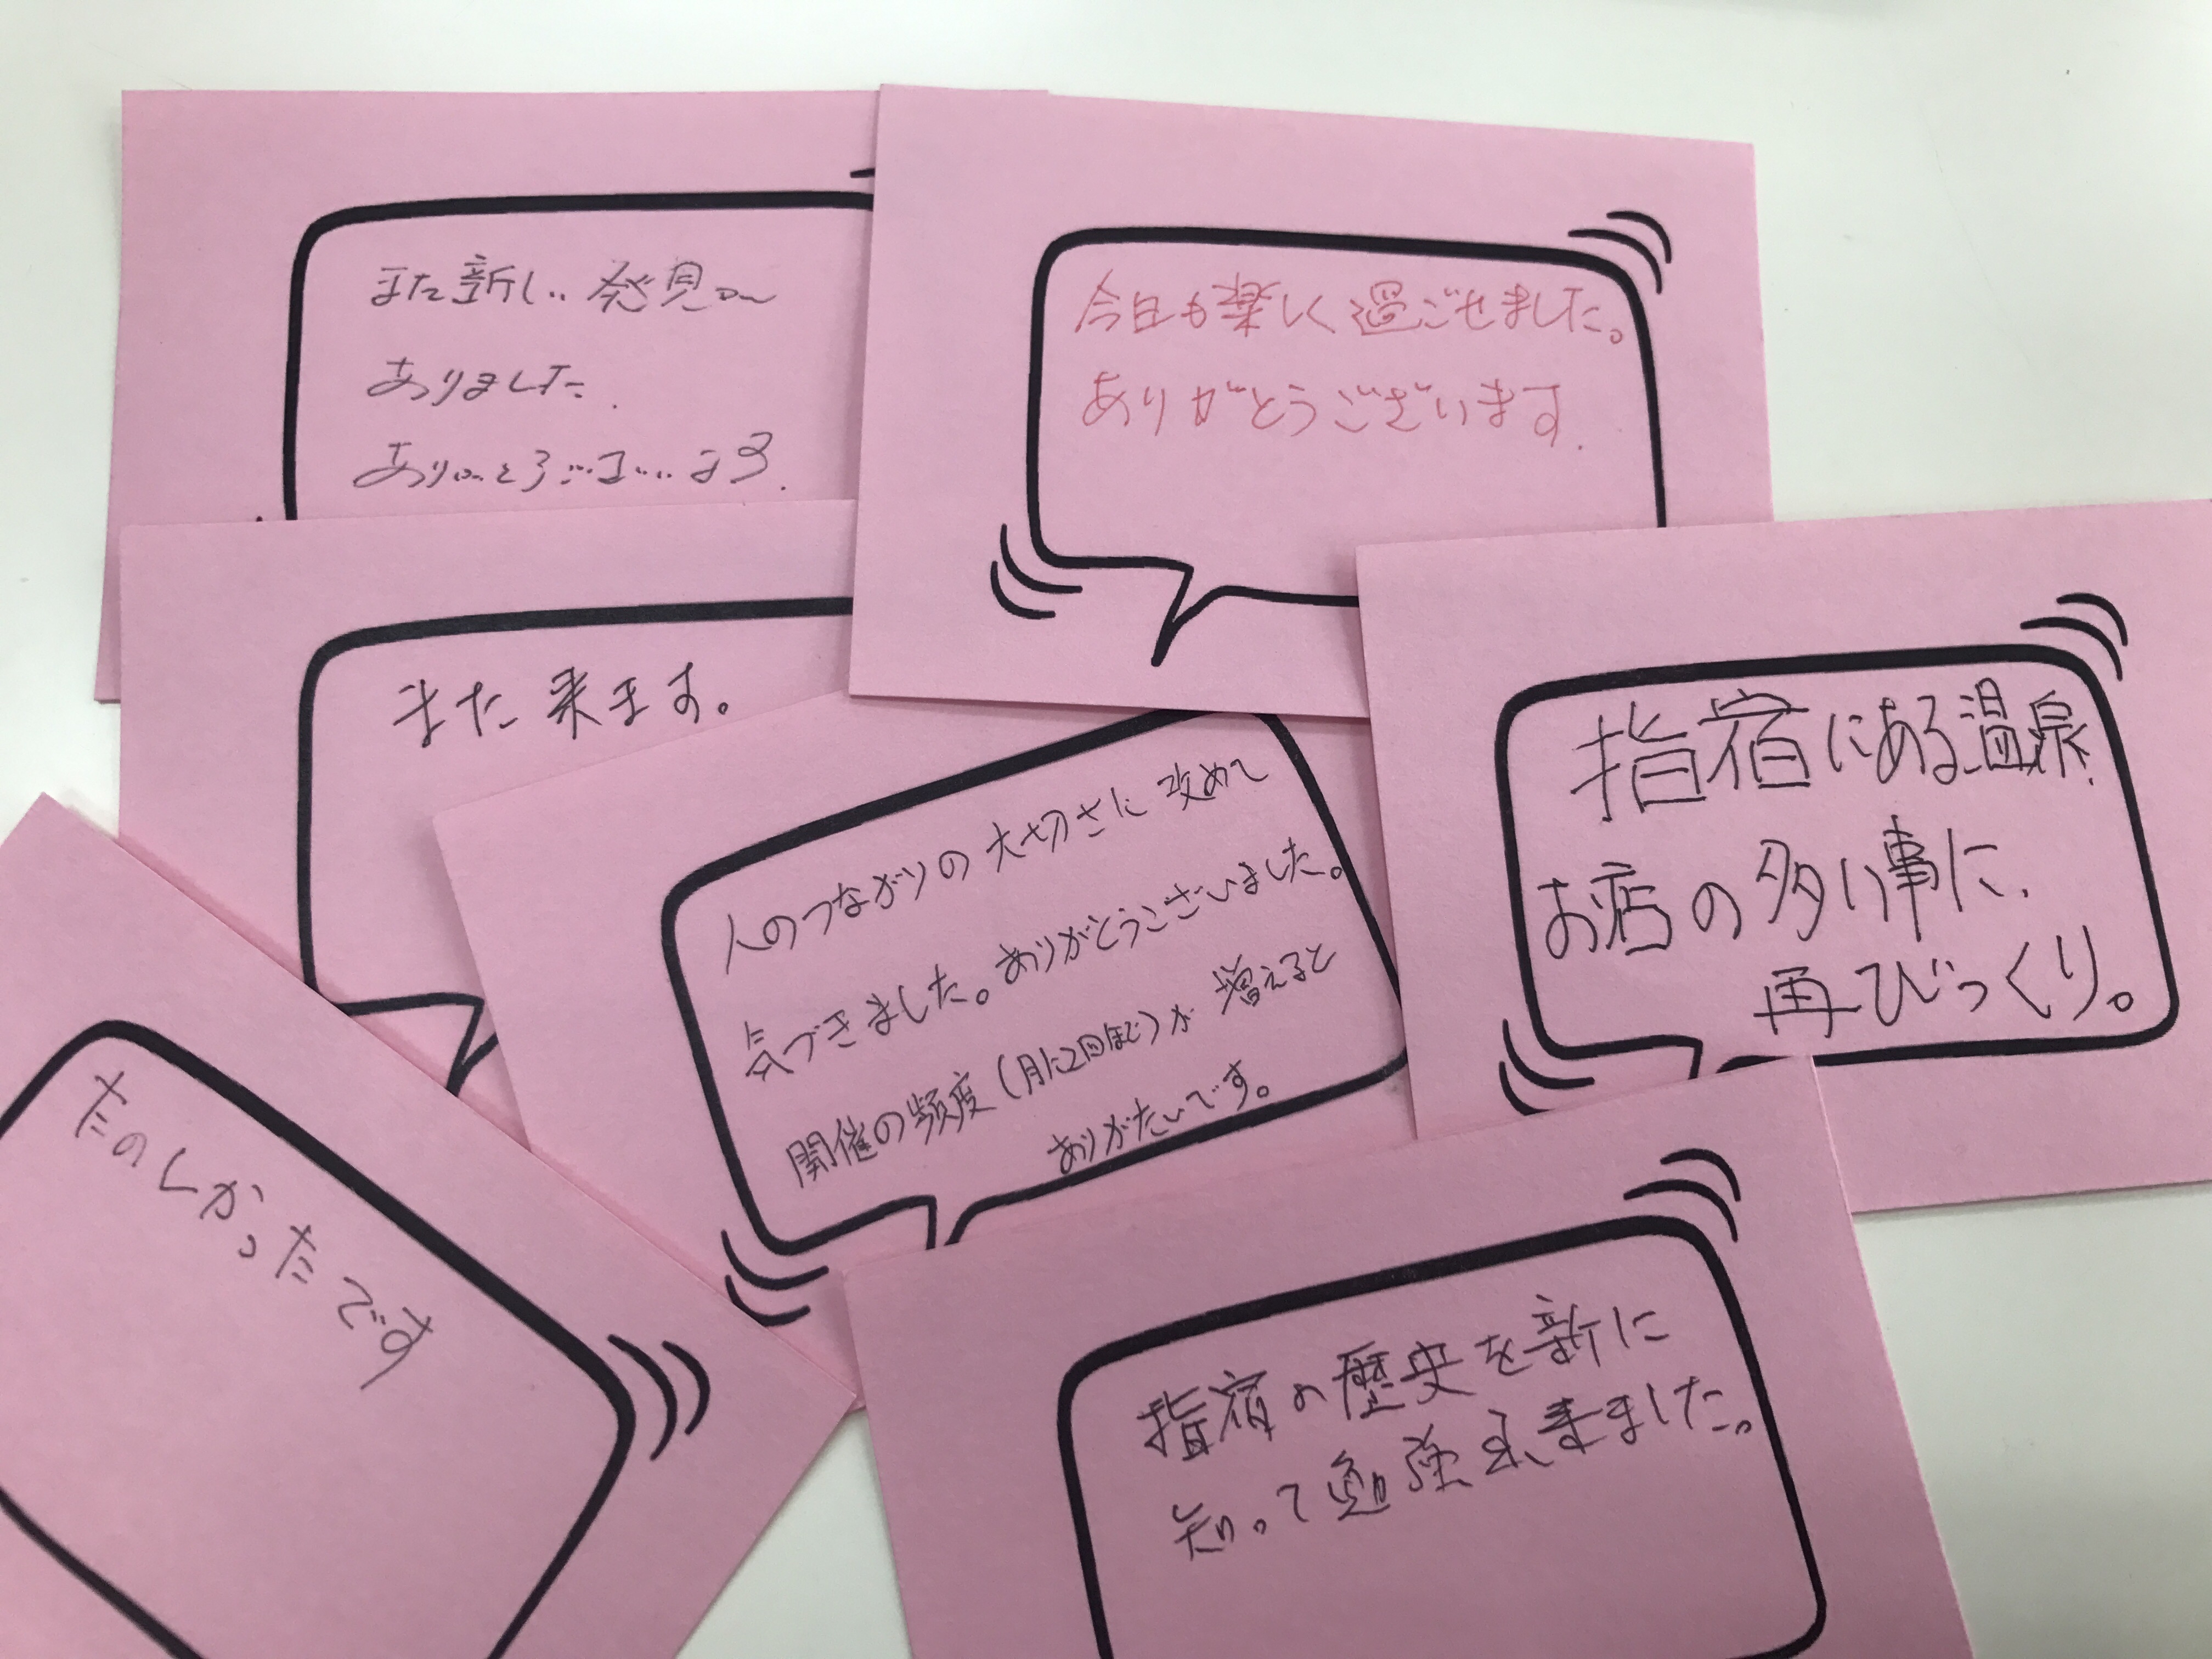 また新しい発見が
ありました.
ありがとうございます.
今日も楽しく過ごせました。
ありがとうございます.
また来ます。
人のつながりの大切さに改めて
気づきました。ありがとうございました。
開催の頻度(月に2回ほど)が増えると
ありがたいです。
指宿にある温泉、
お店の多い事に、
再びっくり。
たのしかったです
指宿の歴史を新に
知って勉強出来ました。